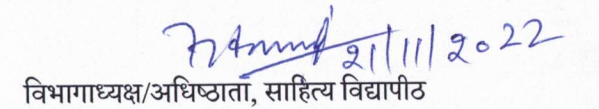 21/11/2022
विभागाध्यक्ष/अधिष्ठाता, साहित्य विद्यापीठ